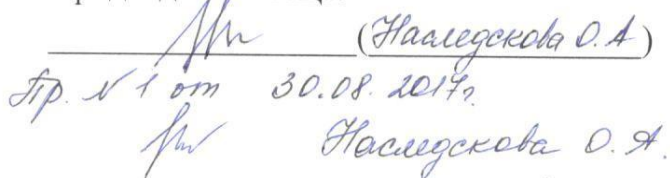 (Наследскова О.А)
Пр. № 1 от 30.08.2017г.
Наследскова О.А.